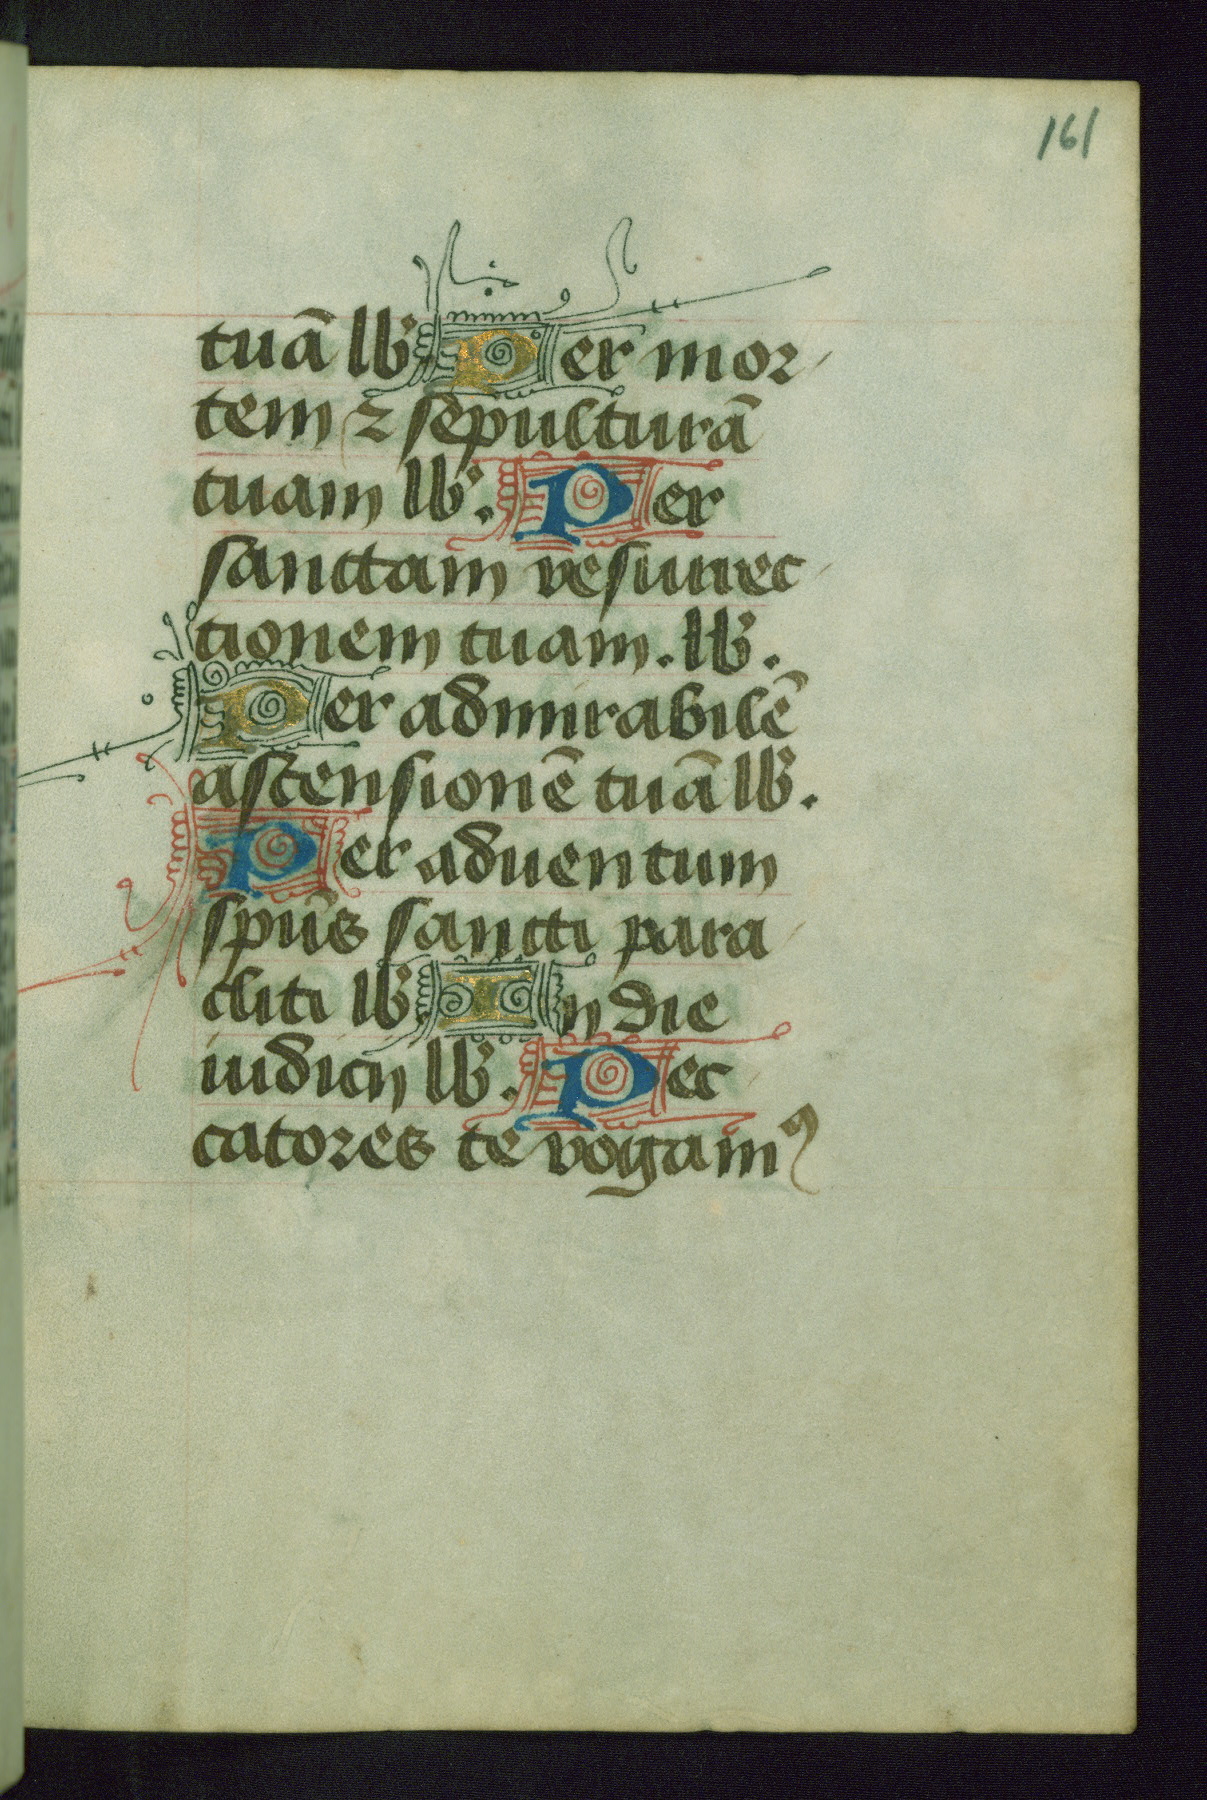 161
tuā lb̄. Per mor
tem ⁊ sepulturā
tuam lb̄. Per
sanctam resurrec
tionem tuam. lb̄.
Per admirabilē
ascensionē tuā lb̄.
Per aduentum
sp̄us sancti para
cliti lb̄. In die
iudicij lb̄. Pec
catores te rogamꝰ